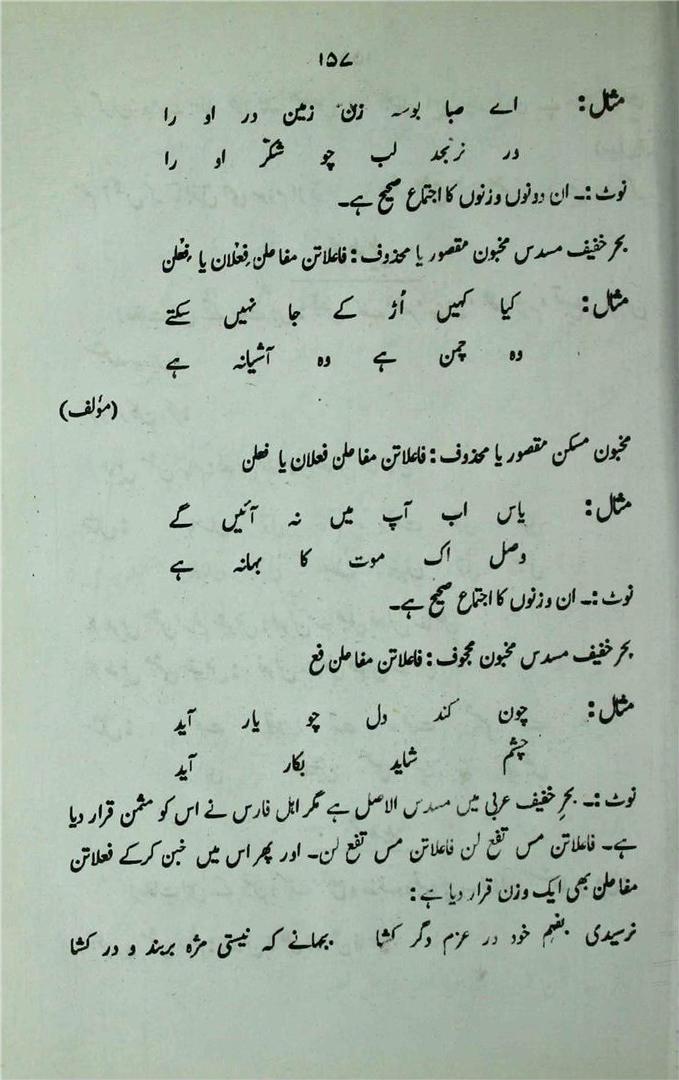 ۱۵۷
مثال: اے صبا بوسہ زن زمین در او را
در نرنجد لب چو شکر او را
نوٹ :۔ ان دونوں وزنوں کا اجتماع صحیح ہے۔
بحر خفیف مسدس مخبون مقصور یا محذوف : فاعلاتن مفاعلن فِعْلان یا فِعْلن
مثال: کیا کہیں اُڑ کے جا نہیں سکتے
وہ چمن ہے وہ آشیانہ ہے
(مؤلف)
مخبون مسکن مقصور یا محذوف : فاعلاتن مفاعلن فعلان یا فعلن
مثال: یاس اب آپ میں نہ آئیں گے
وصل اک موت کا بہانہ ہے
نوٹ :۔ ان وزنوں کا اجتماع صحیح ہے۔
بحر خفیف مسدس مخبون مجحوف : فاعلاتن مفاعلن فع
مثال: چون کند دل چو یار آید
چشم شاید بکار آید
نوٹ :۔ بحرِ خفیف عربی میں مسدس الاصل ہے مگر اہل فارس نے اس کو مثمن قرار دیا
ہے۔ فاعلاتن مس تفع لن فاعلاتن مس تفع لن۔ اور پھر اس میں خبن کرکے فعلاتن
مفاعلن بھی ایک وزن قرار دیا ہے :
نرسیدی بفہم خود در عزم دگر کشا بجہانے کہ نیستی مژہ بربند و در کشا